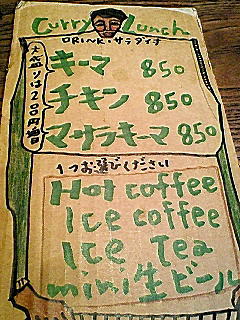 Curry Lunch
DRINK・サラダイす
大盛りは200円増
キーマ 850
チキン 850
マサラキーマ 850
1つお選びください
Hot coffee
Ice coffee
Ice Tea
mini生ビール